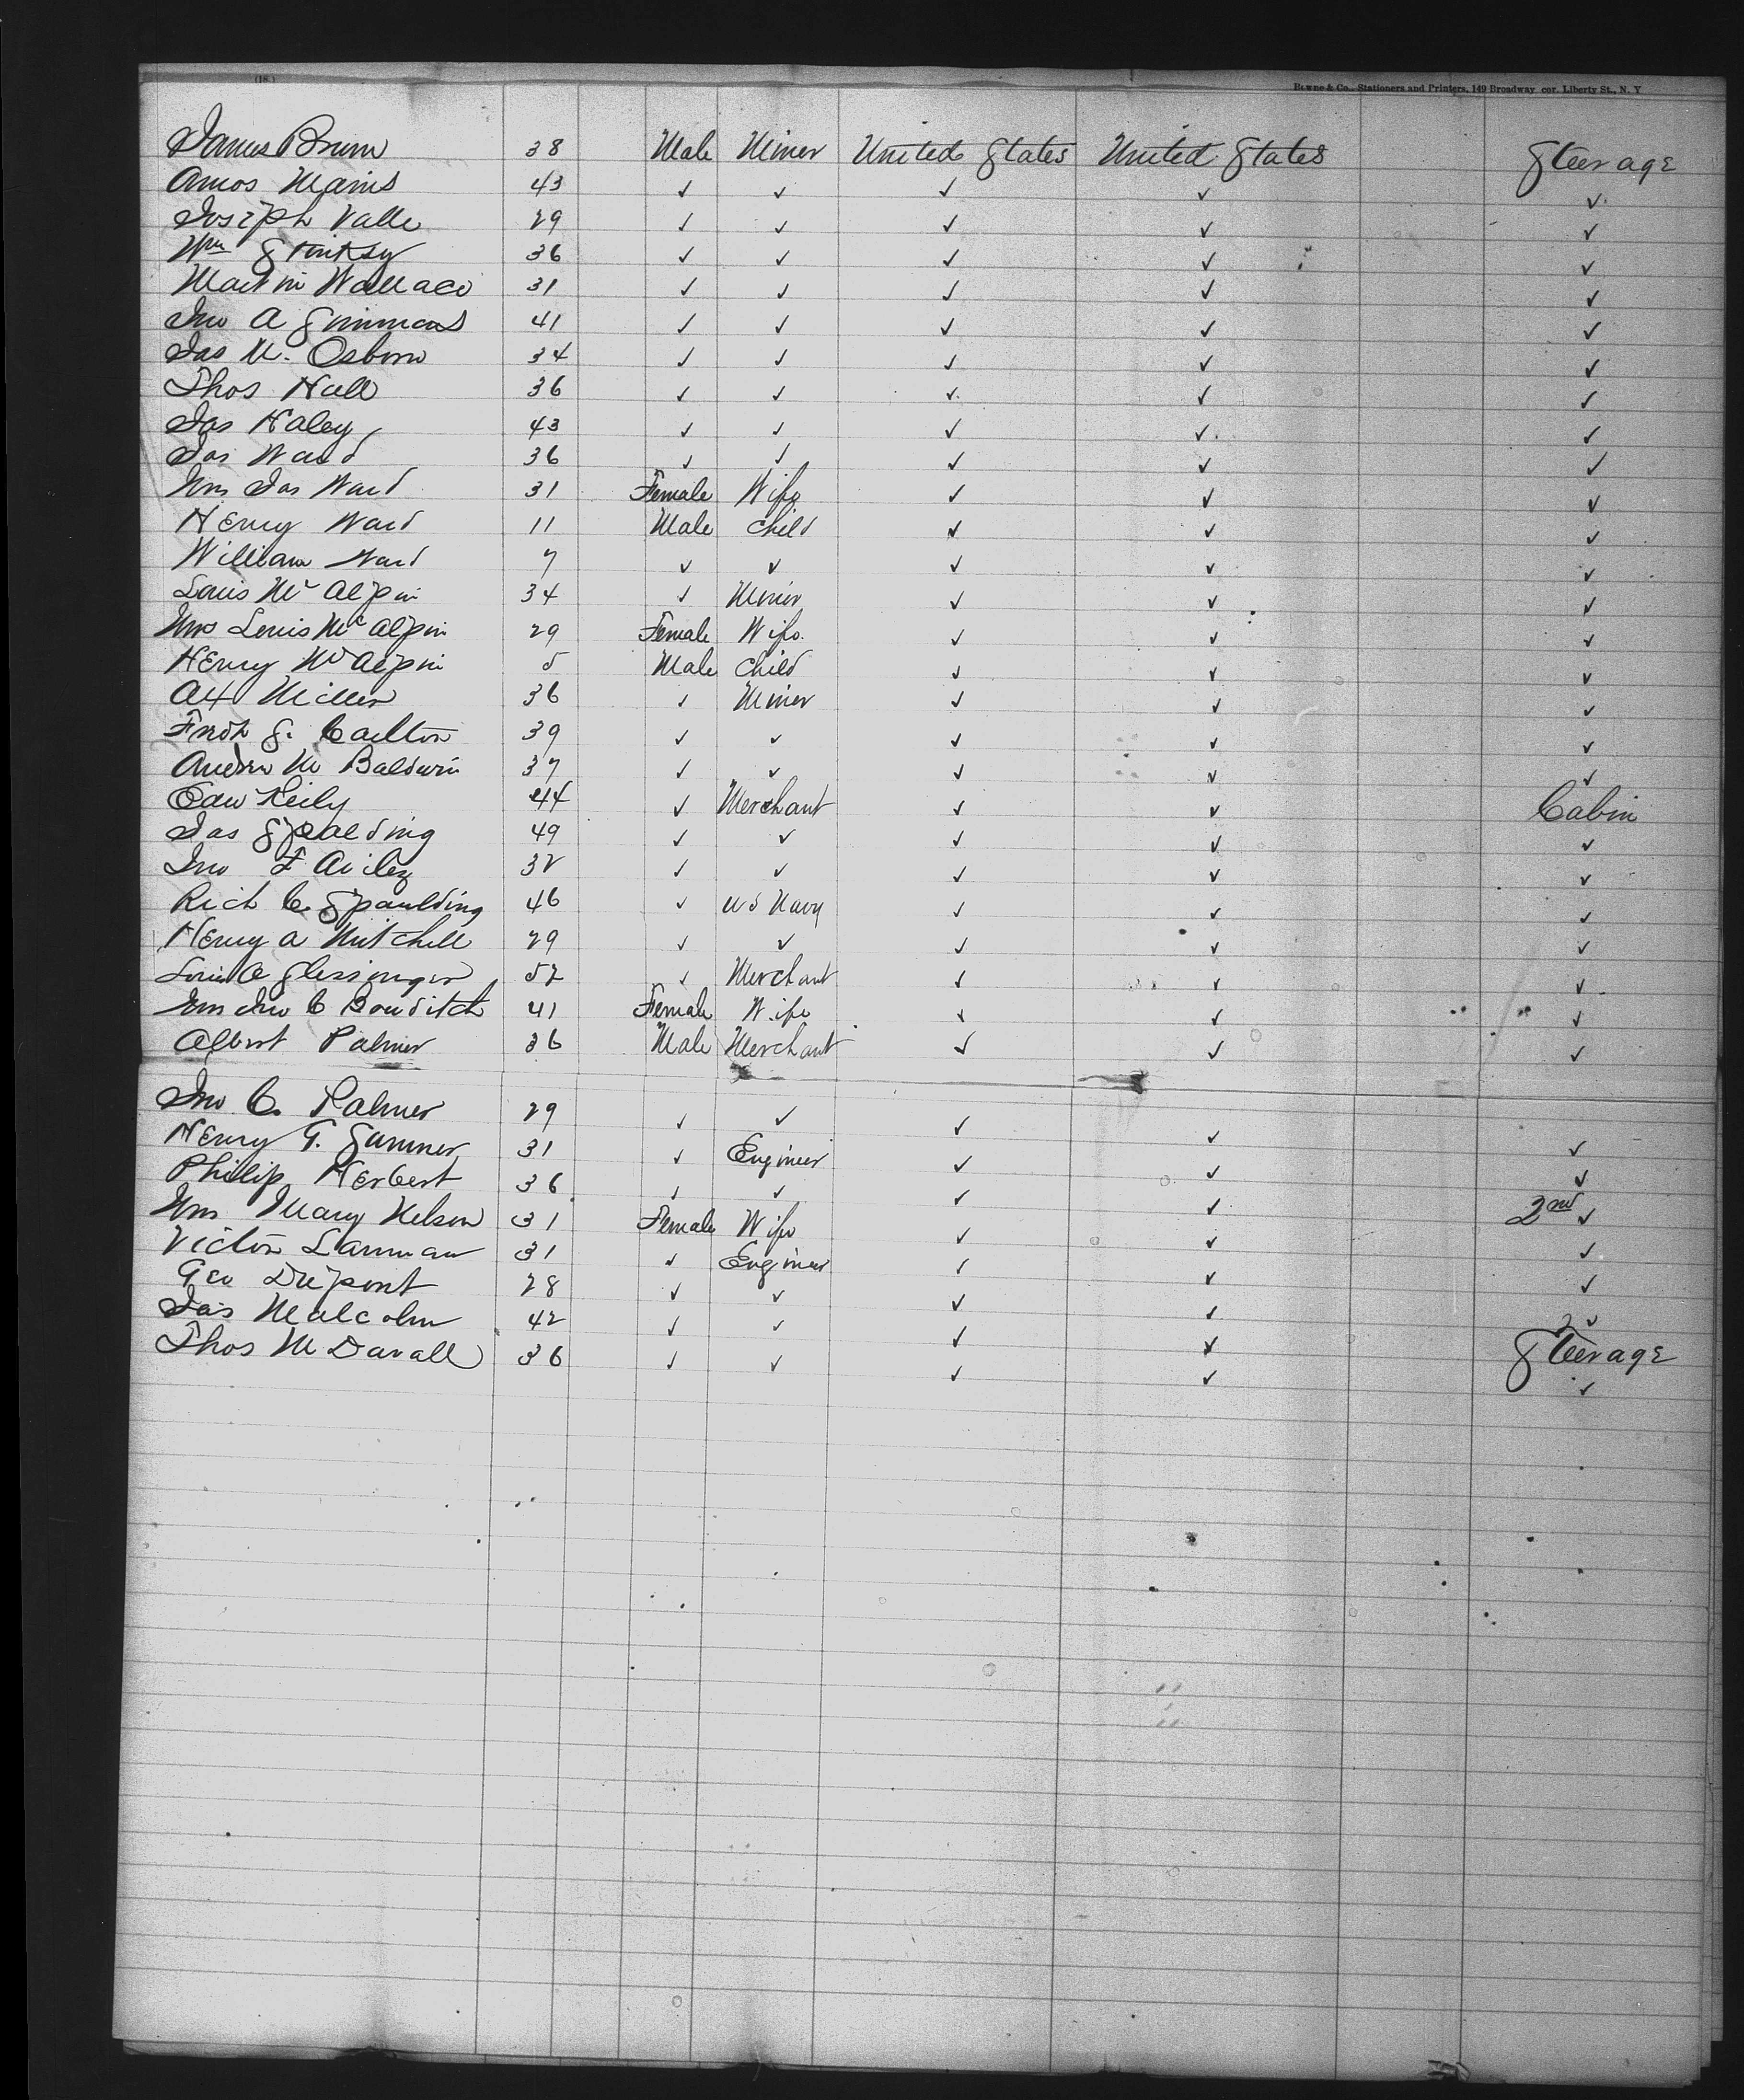 (18.)
Bowne & Co., Stationers and Printers, 149 Broadway, cor. Liberty St., N. Y
James Brum 38 Male Miner United States United States Steerage
Amos Manis 43 ✓ ✓ ✓ ✓ ✓
Joseph Valle 29 ✓ ✓ ✓ ✓ ✓
Wm 36 ✓ ✓ ✓ ✓ ✓
Martin Wallace 31 ✓ ✓ ✓ ✓ ✓
Jno A Simmons 41 ✓ ✓ ✓ ✓ ✓
Jas M. Osborn 34 ✓ ✓ ✓ ✓ ✓
Thos Hall 36 ✓ ✓ ✓ ✓ ✓
Jas Haley 43 ✓ ✓ ✓ ✓ ✓
Jas Ward 36 ✓ ✓ ✓ ✓ ✓
Mrs Jas Ward 31 Female Wife ✓ ✓ ✓
Henry Ward 11 Male Child ✓ ✓ ✓
William Ward 7 ✓ ✓ ✓ ✓ ✓
Louis Mc Alpin 34 ✓ Miner ✓ ✓ ✓
Mrs Louis Mc Alpin 29 Female Wife ✓ ✓ ✓
Henry Mc Alpin 5 Male Child ✓ ✓ ✓
Miller 36 ✓ Miner ✓ ✓ ✓
Fredk S. Carlton 39 ✓ ✓ ✓ ✓ ✓
Andrew M Baldwin 37 ✓ ✓ ✓ ✓ ✓
Edw Reily 44 ✓ Merchant ✓ ✓ Cabin
Jas Spalding 49 ✓ ✓ ✓ ✓ ✓
Jno F 32 ✓ ✓ ✓ ✓ ✓
Rich C. Spaulding 46 ✓ U S Navy ✓ ✓ ✓
Henry A Mitchell 29 ✓ ✓ ✓ ✓ ✓
Louis A Slessinger 52 ✓ Merchant ✓ ✓ ✓
Mrs Jno C Bowditch 41 Female Wife ✓ ✓ ✓
Albert Palmer 36 Male Merchant ✓ ✓ ✓
Jno C. Palmer 29 ✓ ✓ ✓ ✓ ✓
Henry G. Sumner 31 ✓ Engineer ✓ ✓ ✓
Philip Herbert 36 ✓ ✓ ✓ ✓
Mrs Mary Nelson 31 Female Wife ✓ ✓ 2nd ✓
Victor Larman 31 ✓ Engineer ✓ ✓ ✓
Geo Dupont 28 ✓ ✓ ✓ ✓ ✓
Jas Malcolm 42 ✓ ✓ ✓ ✓ ✓
Thos M Davall 36 ✓ ✓ ✓ ✓ Steerage
✓